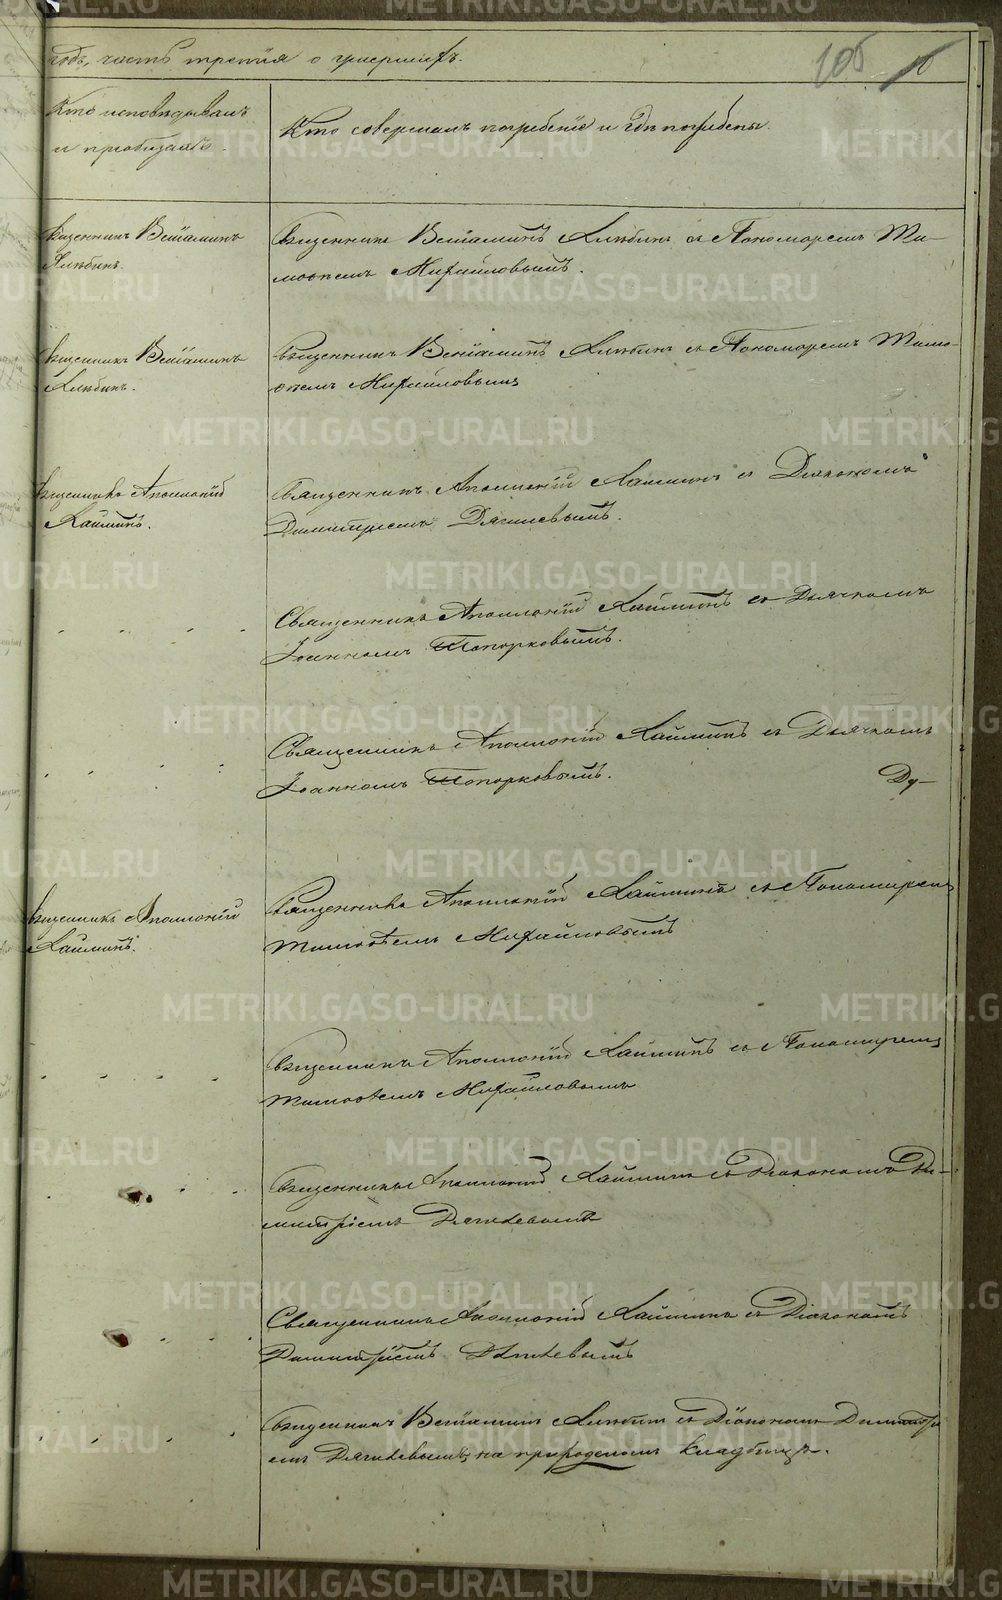 годъ, часть третия о умершихъ.
105
Кто исповѣдывалъ
и пріобщалъ.
Кто совершалъ погребеніе и гдѣ погребены.
Священникъ Веніаминъ
Священникъ Веніаминъ съ Пономаремъ Ти-
моѳеемъ Михайловымъ.
Священникъ Веніаминъ
Священникъ Веніаминъ съ Пономаремъ Тимо-
ѳеемъ Михайловымъ
Священникъ Аполлоній
Священникъ Аполлоній съ Діакономъ
Димитріемъ Дягилевымъ.
Священникъ Аполлоній съ Дьячкомъ
Іоанномъ Топорковымъ.
Священникъ Аполлоній съ Дьячкомъ
Іоанномъ Топорковымъ.
Ду-
Священникъ Аполлоній
Священникъ Аполлоній съ Пономаремъ
Тимоѳеемъ Михайловымъ
Священникъ Аполлоній съ Пономаремъ
Тимоѳеемъ Михайловымъ
Священникъ Аполлоній съ Діакономъ Ди-
митріемъ Дягилевымъ
Священникъ Аполлоній съ Діакономъ
Димитріемъ Дягилевымъ
Священникъ Веніаминъ съ Діакономъ Димитрі-
емъ Дягилевымъ, на кладбищѣ.
METRIKI.GASO-URAL.RU